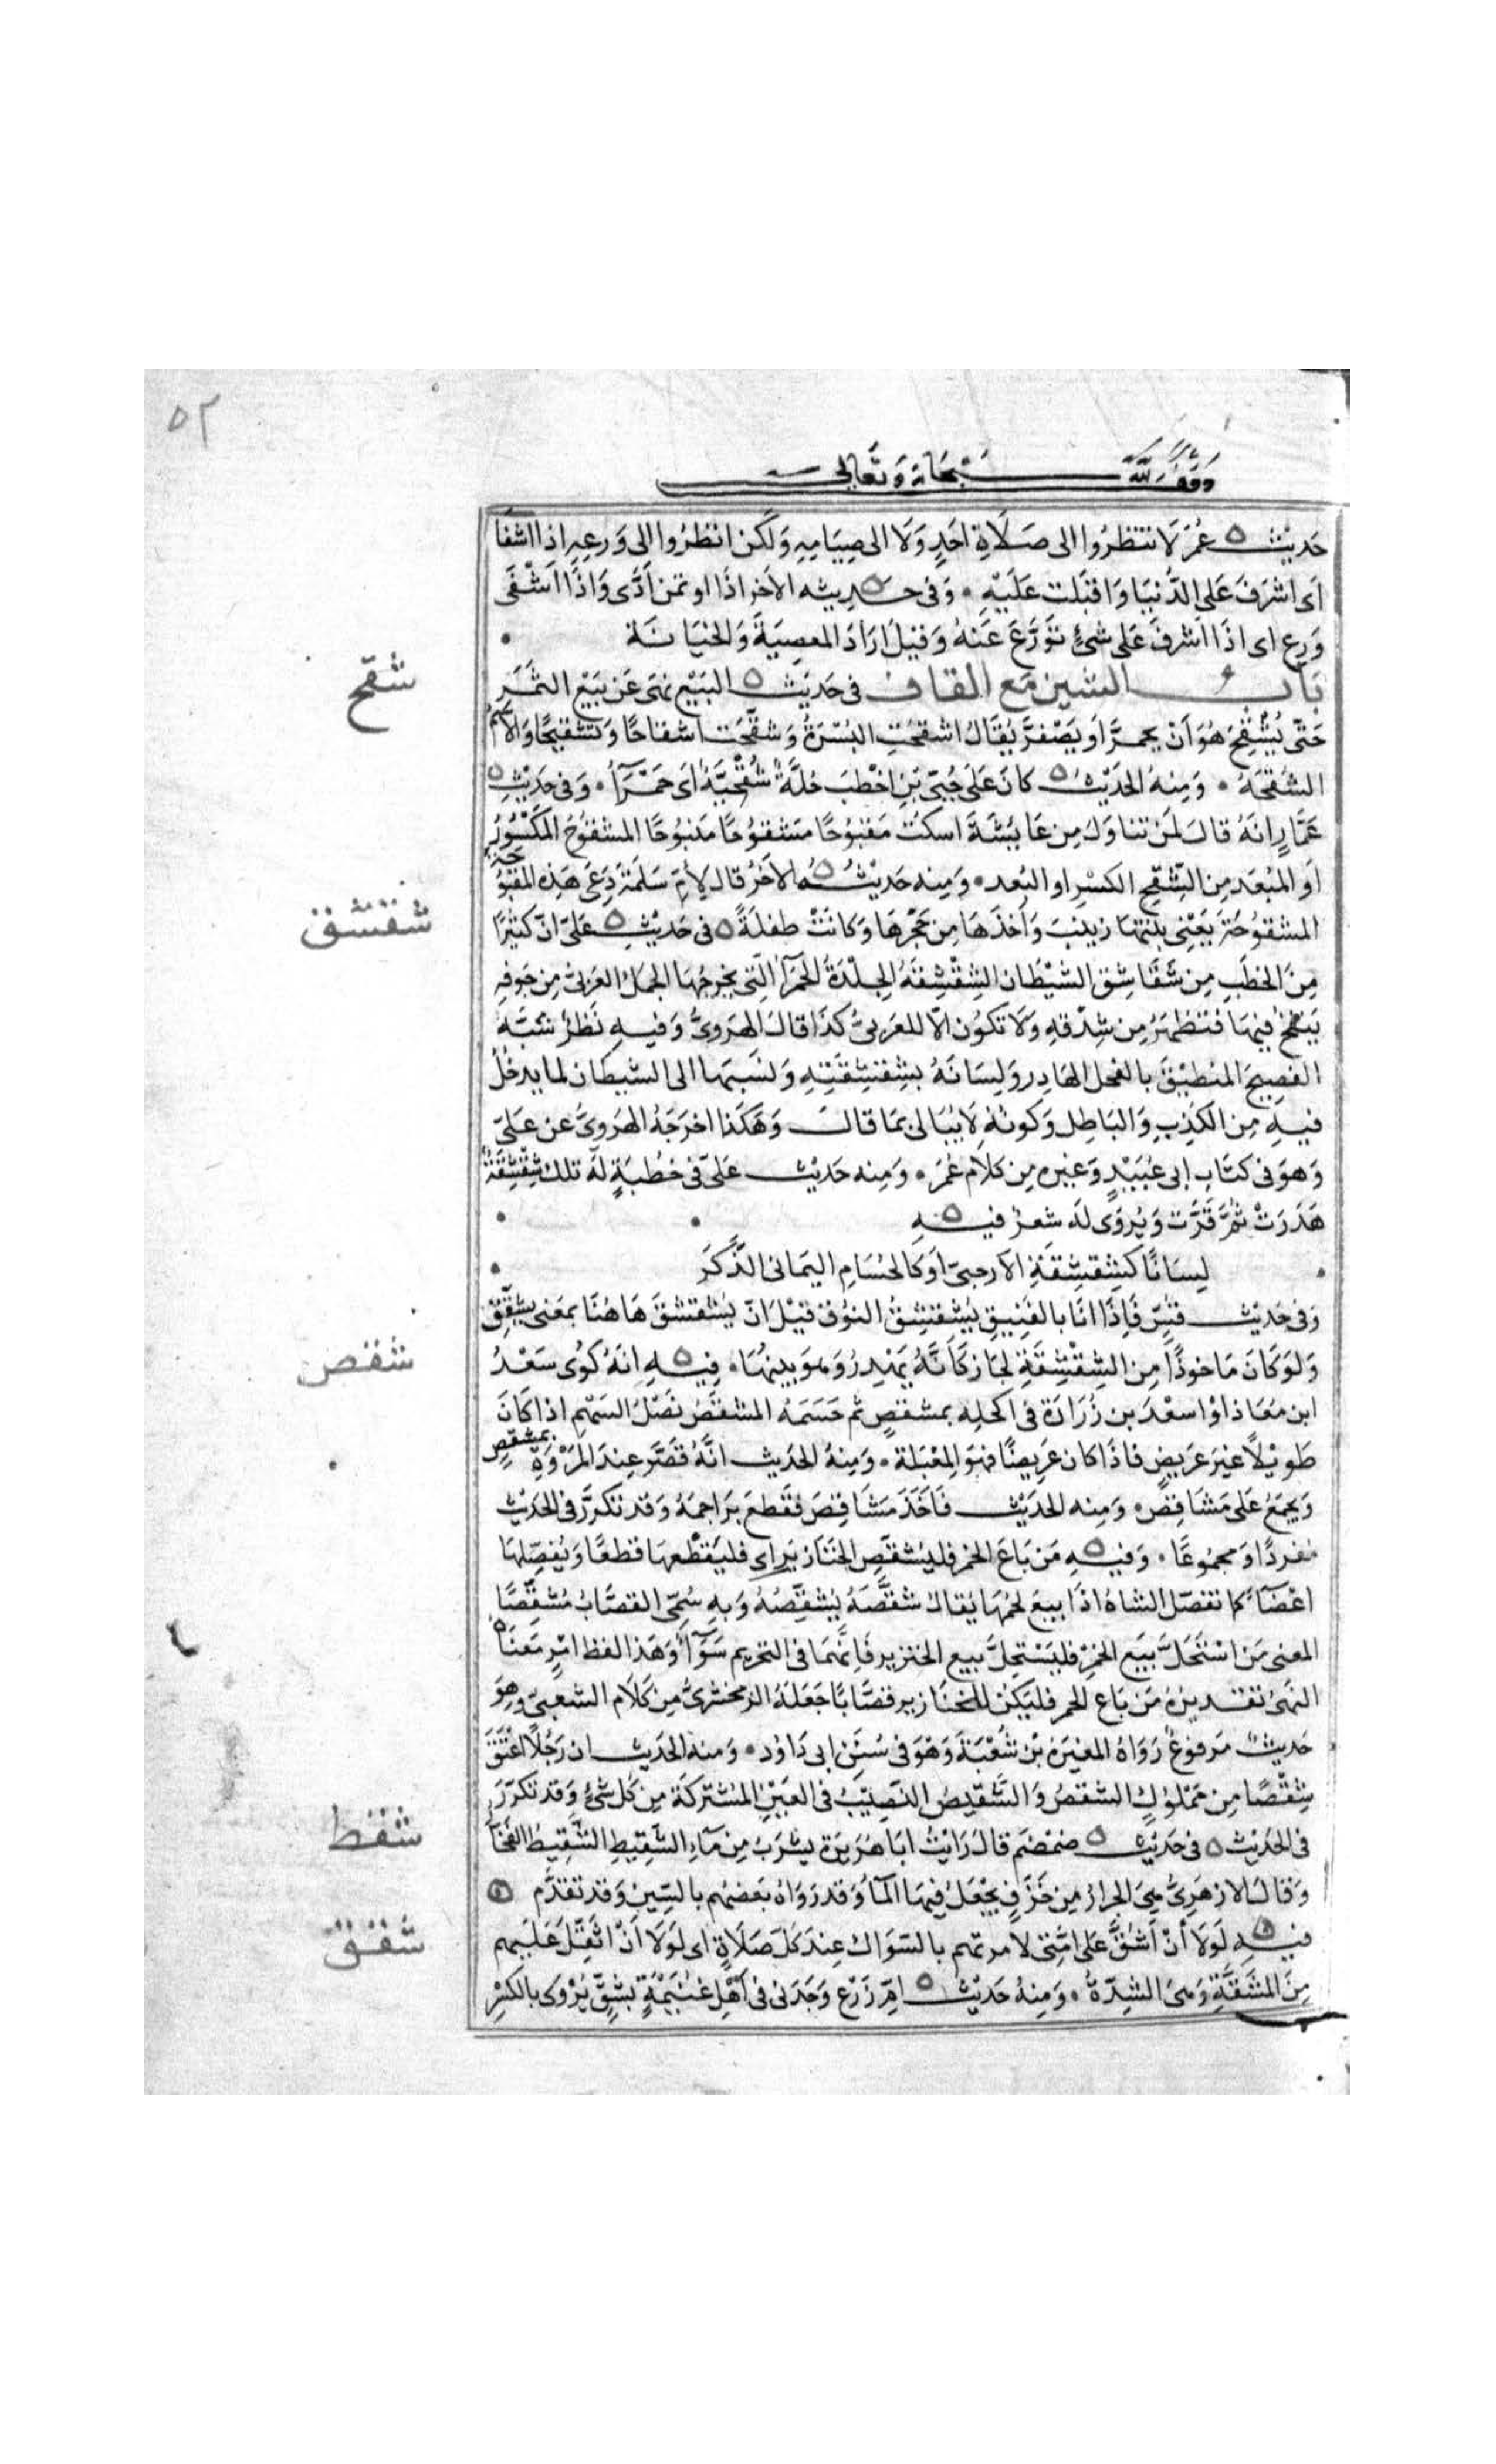 ٥٢
وقف لله سبحانه وتعالى
حديث عُمَرَ لا تنتظرُوا الى صَلاةِ احَدٍ وَلَا الى صِيَامِهِ وَلكن انظرُوا الى وَرعِهِ اذا اشفَا
اى اشرَفَ عَلى الدُّنيَا وَاقبَلت عَلَيْهِ . وَفى حديثه الآخر اذَا اوتمن اَدَّى وَاذَا اَشْفَى
وَرِع اى اذَا اَشرفَ عَلى شئٍ تَوَرَّعَ عَنهُ وَقيلَ ارَادَ المعصِيَةَ وَالخيَانَة
شقح
باب الشين مَع القاف فى حَديث البَيْع نهَى عَن بَيْع الثمَر
حَتّى يُشْقِحَ هُوَ اَنْ يحمرَّ اَو يَصْفرَّ يُقَالُ اشقحَتِ البُسْرَةُ وَشقَّحَت اشقاحًا وَتشقيحًا وَالاسمُ
الشُقحَةُ . وَمِنهُ الحَدِيثُ كانَ عَلى حُيَىّ بنِ اخْطَبَ حُلَّةٌ شُقْحيَّةٌ اى حَمْرَآءُ . وَفى حَدِيْثِ
عَمَّارٍ انَهُ قالَ لمَنْ تناوَلَ مِن عَايُشَةَ اسكُتْ مَقبُوحًا مَشقُوحًا مَنبُوحًا المشقوُحُ المَكسُورُ
اَو المُبْعَد مِن الشقحِ الكسْرِ او البُعد . وَمِنه حَدِيثُهُ الآخَرُ قال لِأمّ سَلَمَةَ دَعى هَذِه المقبُوحَة
شقشق
المشقوُحَة يَعْنِى بنتهَا زينبَ وَاَخذَهَا مِن حَجْرِهَا وَكانَتْ طفلَةً فى حَدِيْثِ عَلىّ انّ كثِيْرًا
مِنَ الخطَبِ مِن شَقَاشِق الشيْطَان الشِقْشِقَهُ الجلْدَةُ الحَمَرآءُ الَّتِى يخرجُهَا الجَملُ العَربىُّ مِن جَوفِه
يَنفخُ فيهَا فتظهَرُ مِن شِدْقهِ وَلَا تكوُن الّا للعَربىِّ كذَا قالَ الهَروىُّ وَفيهِ نَظرٌ شَبَّهَ
الفصِيحَ المنطيْقَ بالفحل الهَادِر وَلِسَانَهُ بشِقشِقَتِهِ وَنسَبَهَا الى الشيطَان لما يدخُلُ
فيهِ مِن الكَذِبِ وَالبَاطِل وَكونُهُ لَا يُبَالى بمَا قالَ وَهَكَذا اخرَجَهُ الهَروىُّ عن عَلىّ
وَهوَ فى كتَاب ابى عُبَيْدٍ وَغيره مِن كلام عُمَرَ . وَمِنه حَديْث عَلىّ فى خطُبَةٍ لَهُ تلك شِقْشِقَةٌ
هَدَرَتْ ثُمَّ قَرَّت وَيُروَى لَه شعرٌ فيهِ
لِسَانًا كَشِقشِقَةِ الأرحبىّ اَو كالحُسَامِ اليَمانى الذَّكَر
وَفى حَديْث قُسٍّ فَاِذَا انَا بالفَنِيقِ يُشقشِقُ النوُقَ قيْلَ انّ يُشقشقَ هَاهُنَا بمعَنى يشقِّقُ
شقص
وَلوَ كَانَ مَاخوذًا مِن الشِقْشِقَةِ لجَازَ كَأنَّهُ يَهْدِرُ وَهوَ بينهَا . فِيهِ انَهُ كوُى سَعْدُ
ابن مُعَاذ اَوْ اسعْدَ بن زُرَارَةَ فى اكحلِه بمشقصٍ ثم حَسَمَهُ المشقصُ نَصْلُ السَهْمِ اذا كَانَ
طَويْلًا غيَر عَريضٍ فاذَا كان عَرِيضًا فهوَ المعْبَلَة . وَمِنهُ الحَديث انَّهُ قصَّرَ عِندَ المَرْوَةِ بمشقصٍ
وَيجمَعُ عَلى مَشَاقِصَ . وَمِنه الحدَيْث فَاَخَذَ مَشَاقِصَ فقطعَ بَرَاجمَهُ وَقد تكررَّ فى الحَدِيث
مُفردًا وَمجمُوعًا . وَفيهِ مَن بَاعَ الخمر فليُشقّصِ الخنَازيرَ اى فليَقطّعهَا قطعًا وَيُفصّلهَا
اعْضَآءً كما تفصّل الشاهُ اذَا بيعَ لحمُهَا يُقالُ شَقَّصَهُ يُشقِّصُهُ وَبهِ سُمِّىَ القصَّابُ مُشَقِّصًا
المعنى مَن اسْتَحَلَّ بيَعَ الخمرِ فليَسْتحِلَّ بيع الخنزير فَاِنَّهمَا فى التحَريم سَوَآءٌ وَهَذا لفظ امْرٍ مَعنَاهُ
النَهىُ تقديرُهُ مَن بَاع الخمر فليَكُن للخنَازير قصَّابًا جَعَلَهُ الزمخشرىُّ مِن كَلَام الشعبىّ وهوَ
حَديثٌ مَرفوعٌ رَوَاهُ المغيَرةُ بن شُعْبَةَ وَهْوَ فى سُنَن ابى دَاوُد . وَمنهُ الحَديث ان رَجُلًا اعْتَقَ
شِقْصًا مِن مَمْلوُكٍ الشقصُ وَالشَّقيصُ النَصِيْبُ فى العَيْنِ المُشتركَة مِن كُل شئٍ وَقد تكرّرَ
شقط
فى الحَديْث فى حَديْث ضمْضَم قالَ رَايْتُ ابَا هُرَيرَة يشرَبُ مِن مَآءِ الشَقِيطِ الشَّقِيْطُ الفَخَّارُ
وَقالَ الازهَرىُّ هِىَ الجرارُ مِن خَزَفٍ يُجْعَلُ فيْهَا المَآءُ وَقد رَوَاهُ بَعضهُم بالسّينِ وَقد تقدّم
شقق
فيهِ لَوَلَا أنْ اَشُقَّ عَلى امَّتِى لامرتهم بالسّوَاك عِندَ كلّ صَلَاةٍ اى لَوَلَا اَنْ اثقِّلَ عَلَيهم
مِنَ المشَقّةِ وَهىَ الشِدّةُ . وَمنهُ حَديْث امِّ زَرْع وَجَدَنى فى اَهْل غُنَيْمَةٍ بشِقٍّ يُرْوَى بالكَسْرِ